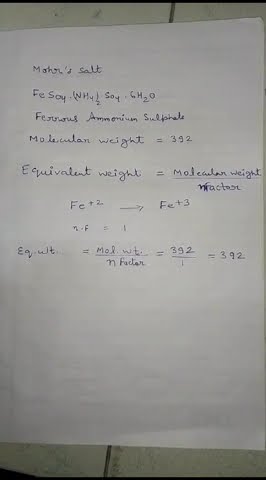 Mohr's salt
FeSO4.(NH4)2 SO4. 6H2O
Ferrous Ammonium Sulphate
Molecular weight = 392
Equivalent weight = Molecular weight / n factor
Fe+2 → Fe+3
n.f = 1
Eq. wt. = Mol. wt. / n factor = 392 / 1 = 392